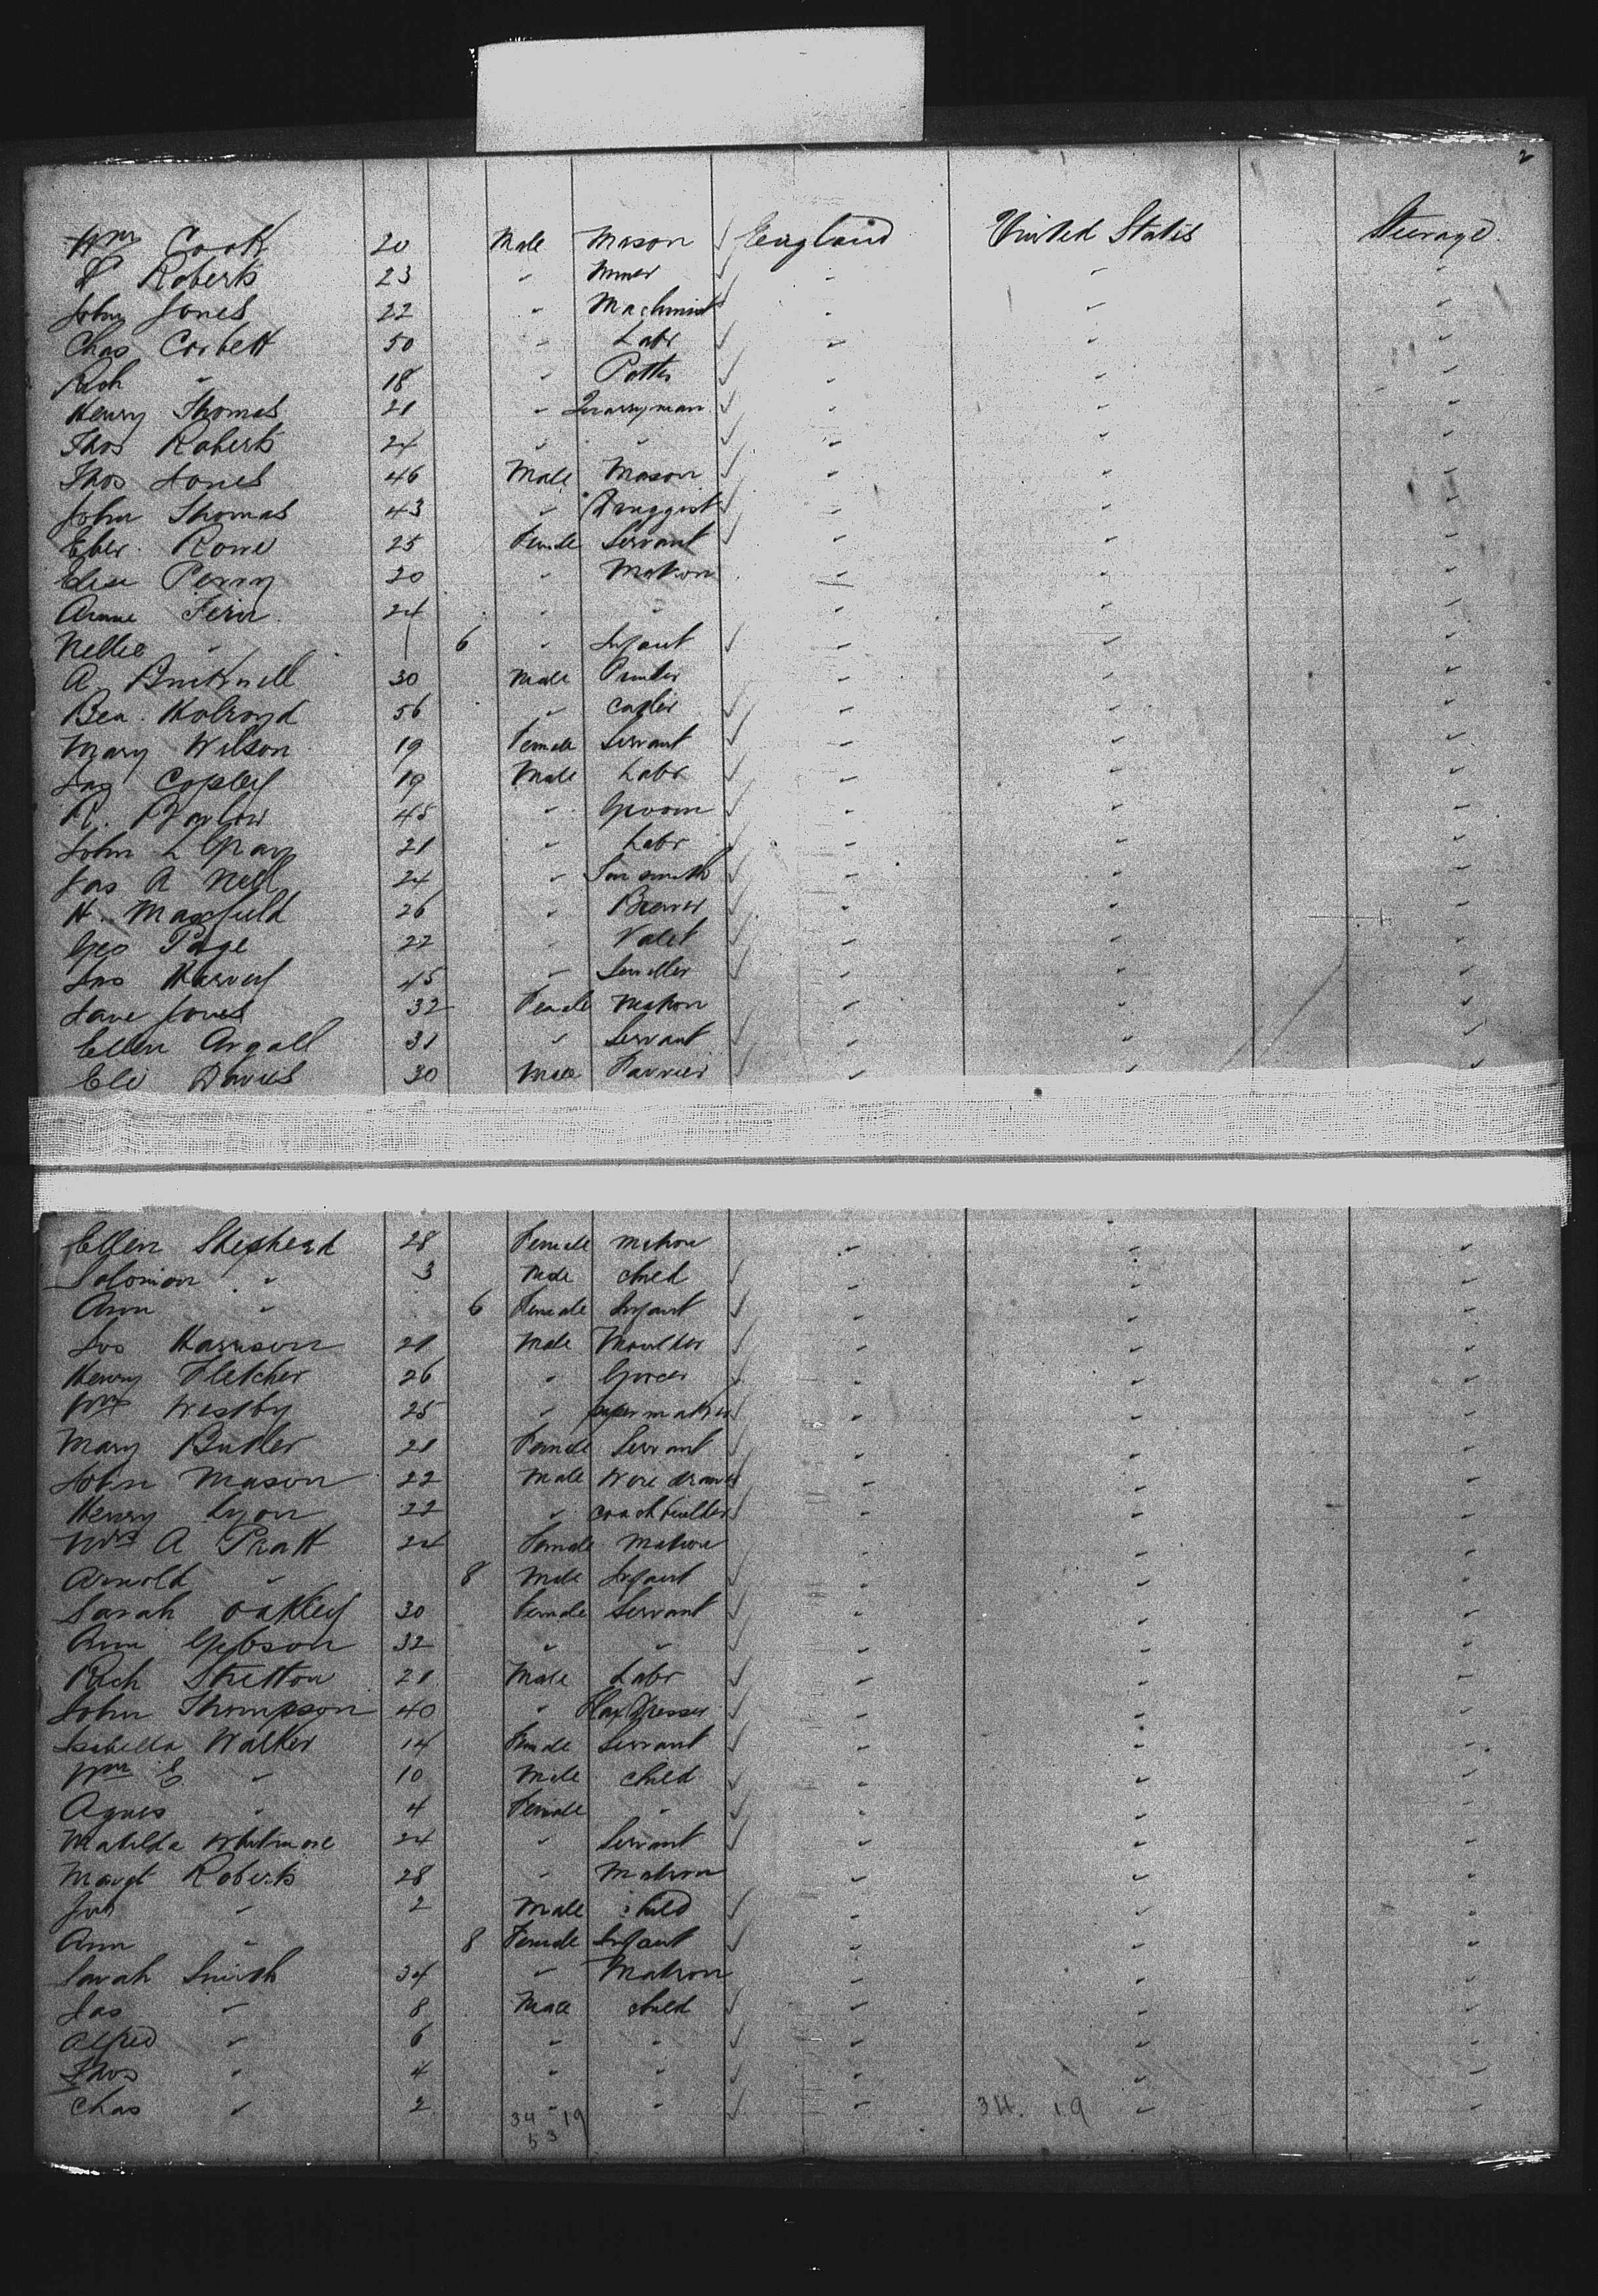 2
Wm Cook 20 Male Mason England United States Steerage
Roberts 23 " Miner " " "
John Jones 22 " Machinist " " "
Chas Corbett 50 " Labr " " "
Rich " 18 " Potter " " "
Henry Thomas 21 " Quarryman " " "
Thos Roberts 24 " " " " "
Thos Jones 46 Male Mason " " "
John Thomas 43 " Druggist " " "
Eber Rowe 25 Female Servant " " "
Perry 20 " Matron " " "
Annie Fern 24 " " " " "
Nellie " 6 " Infant " " "
A 30 Male " " "
Ben. Holroyd 56 " " " "
Mary Wilson 19 Female Servant " " "
Copley 19 Male Labr " " "
R. Barlow 45 " Groom " " "
John L Gray 21 " Labr " " "
Jas A 24 " " " "
H. Maxfield 26 " Brewer " " "
Geo Page 22 " Valet " " "
Jas Harvey 45 " Smelter " " "
Jane Jones 32 Female Matron " " "
Ellen Argall 31 " Servant " " "
Eli Davies 30 Male Farrier " " "
Ellen Shepherd 28 Female Matron " " "
Solomon " 3 Male child " " "
Ann " 6 Female Infant " " "
Jos Harrison 21 Male Moulder " " "
Henry Fletcher 26 " Grocer " " "
Wm Westby 25 " paper maker " " "
Mary Butler 21 Female Servant " " "
John Mason 22 Male Wire drawer " " "
Henry Lyon 22 " coachbuilder " " "
Mrs A Pratt 24 Female Matron " " "
Arnold " 8 Male Infant " " "
Sarah Oakley 30 Female Servant " " "
Ann Gibson 32 " " " " "
Rich Stretton 21 Male Labr " " "
John Thompson 40 " Flax Dresser " " "
Isabella Walker 14 Female Servant " " "
Wm E " 10 Male child " " "
Agnes " 4 Female " " " "
Matilda Whitmore 24 " Servant " " "
Margt Roberts 28 " Matron " " "
" 2 Male child " " "
Ann " 8 Female Infant " " "
Sarah Smith 34 " Matron " " "
Jas " 8 Male child " " "
Alfred " 6 " " " " "
Thos " 4 " " " " "
Chas " 2 " " " " "
34 19 34. 19
53